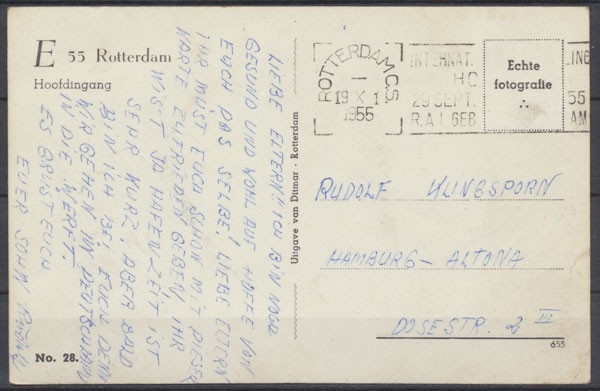 E 55 Rotterdam
Hoofdingang
LIEBE ELTERN! ICH BIN NOCH
GESUND UND WOHL AUF HOFFE VON
EUCH DAS SELBE! LIEBE ELTERN
IHR MÜST EUCH SCHON MIT DIESER
KARTE ZUFRIEDEN GEBEN. IHR
WIST JA HAFENZEIT IST
SEHR KURZ, ABER BALD
BIN ICH BEI EUCH DENN
WIR GEHEN IN DEUTSCHLAND
IN DIE WERFT.
ES GRÜST EUCH
EUER SOHN
No. 28.
Uitgave van Ditmar - Rotterdam
ROTTERDAM C.S
I
19 X 1
1955
INTERNAT.
HC
29 SEPT.
R.A.I. GEB
LING
55
AM
Echte
fotografie
RUDOLF KLINGSPORN
HAMBURG-ALTONA
DOSESTR. 2 III
655